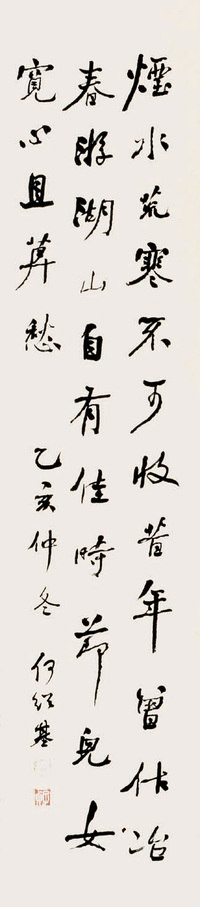 煙水荒寒不可收昔年曾佔冶
春游湖山自有佳時節兒女
寬心且莫愁 乙亥仲冬 何紹基